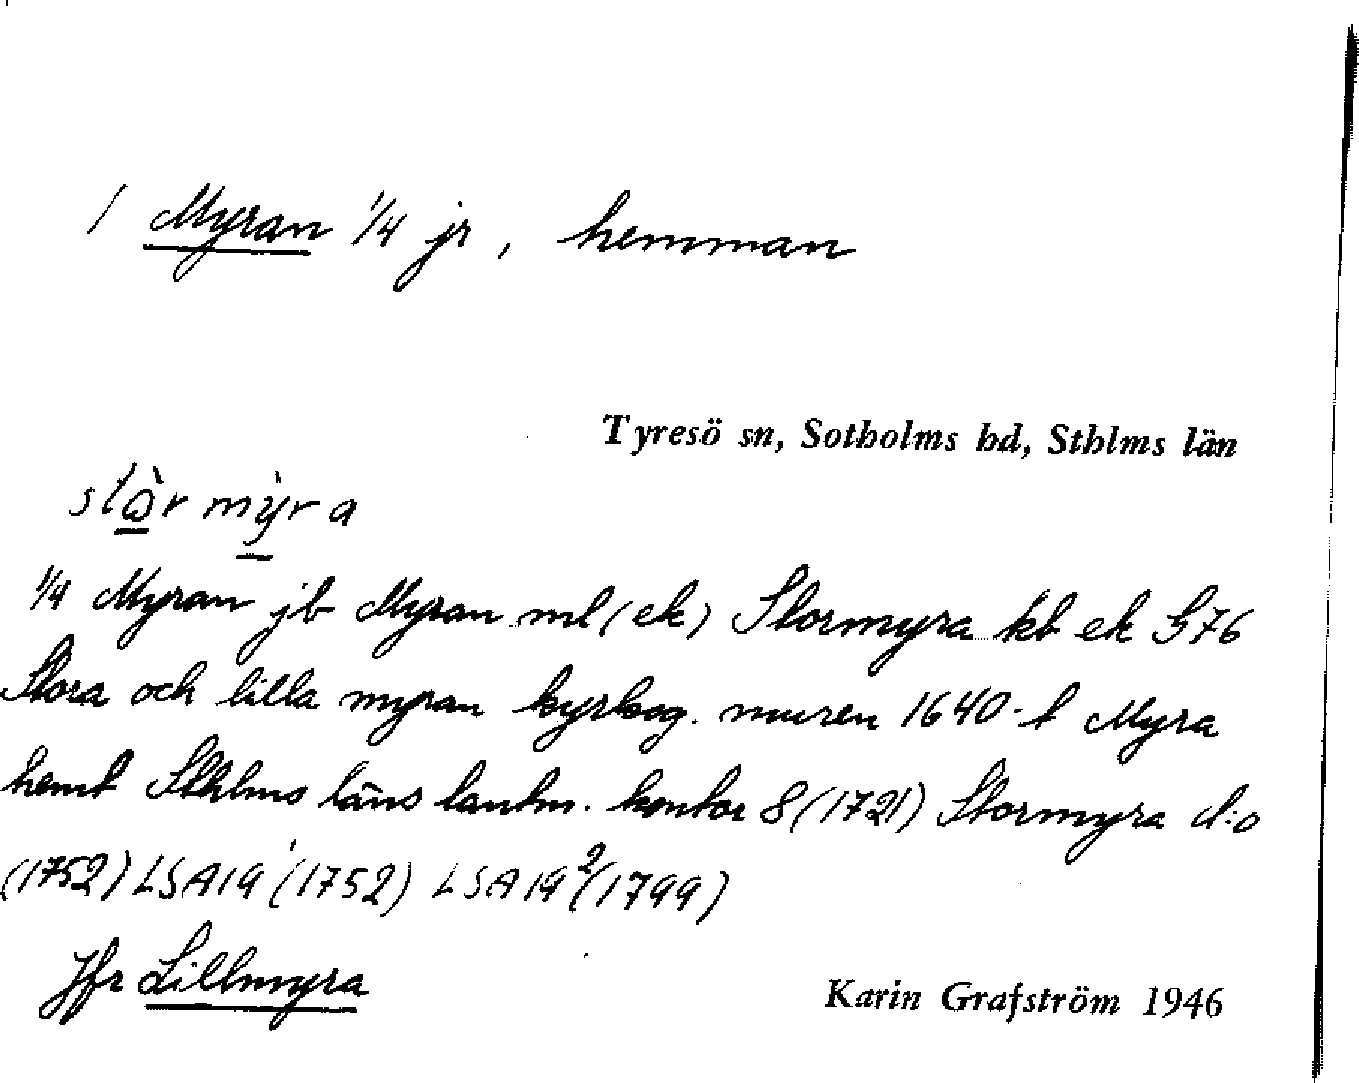 1 Myran 1/4 jr, hemman
Tyresö sn, Sotholms hd, Sthlms län
stò̱r mỳ̱ra
1/4 Myran jb Myran ml (ek) Stormyra kb ek G76
Stora och lilla myran kyrkog. muren 1640-t Myra
hemt Sthlms läns lantm. kontor 8 (1721) Stormyra d:o
(1752) LSA 19¹ (1752) LSA 19² (1799)
Jfr Lillmyra
Karin Grafström 1946